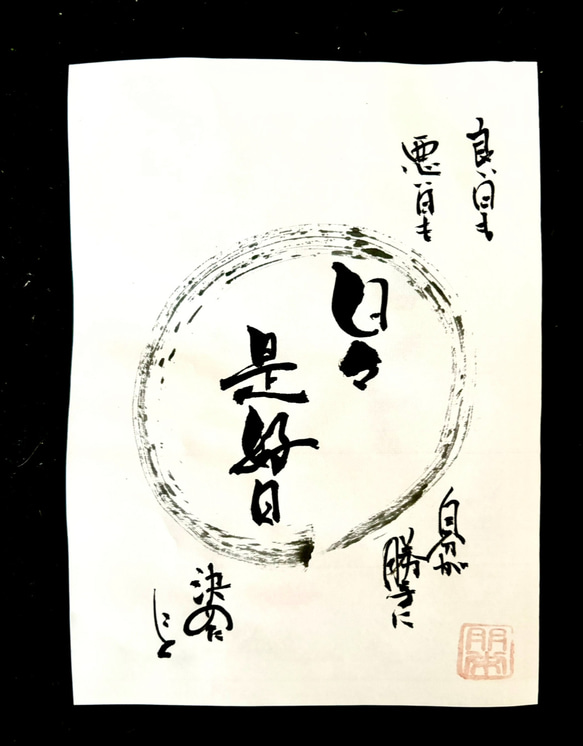 良い日も
悪い日も
日々
是好日
自分が
勝手に
決めた
こと